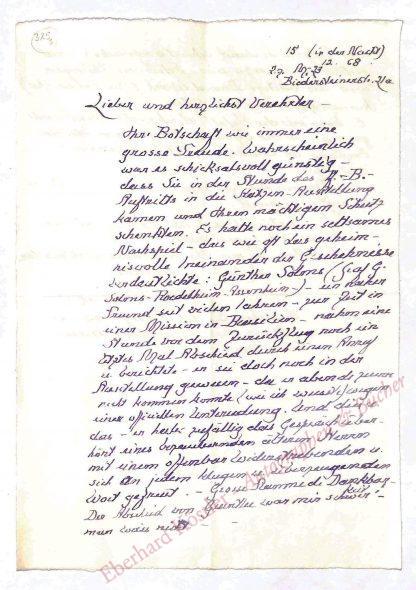 325
15 (in der Nacht)
12 68
Biedersteinerstr. 21a
Lieber und herzlichst Verehrter -
Ihre Botschaft wie immer eine
grosse Freude. Wahrscheinlich
war es schicksalsvoll günstig -
dass Sie in der Stunde des -B-
Auftritts in die Katzen-Ausstellung
kamen und Ihren mächtigen Schutz
schenkten. Es hatte noch ein seltsames
Nachspiel - das wie oft das geheim-
nisvolle Ineinander der Geschehnisse
verdeutlichte: Günther Solms (Graf G.
Solms-Roedelheim-Assenheim) - ein naher
Freund seit vielen Jahren - zur Zeit in
einer Mission in Brasilien - nahm eine
Stunde vor dem Zurückflug noch ein
letztes Mal Abschied durch einen Anruf
u. berichtete - er sei doch noch in der
Ausstellung gewesen - da er abends zuvor
nicht kommen konnte (wie ich wusste) wegen
einer offiziellen Unterredung. Und
das - er habe zufällig das Gespräch über-
hört eines bezaubernden älteren Herrn
mit einem offenbar Widerstrebenden u.
sich an jedem klugen u. überzeugenden
Wort gefreut - Grosse Dankbar-
keit
Der Abschied von Günther war mir schwer -
man weiss nie
Eberhard Autographen Bücher